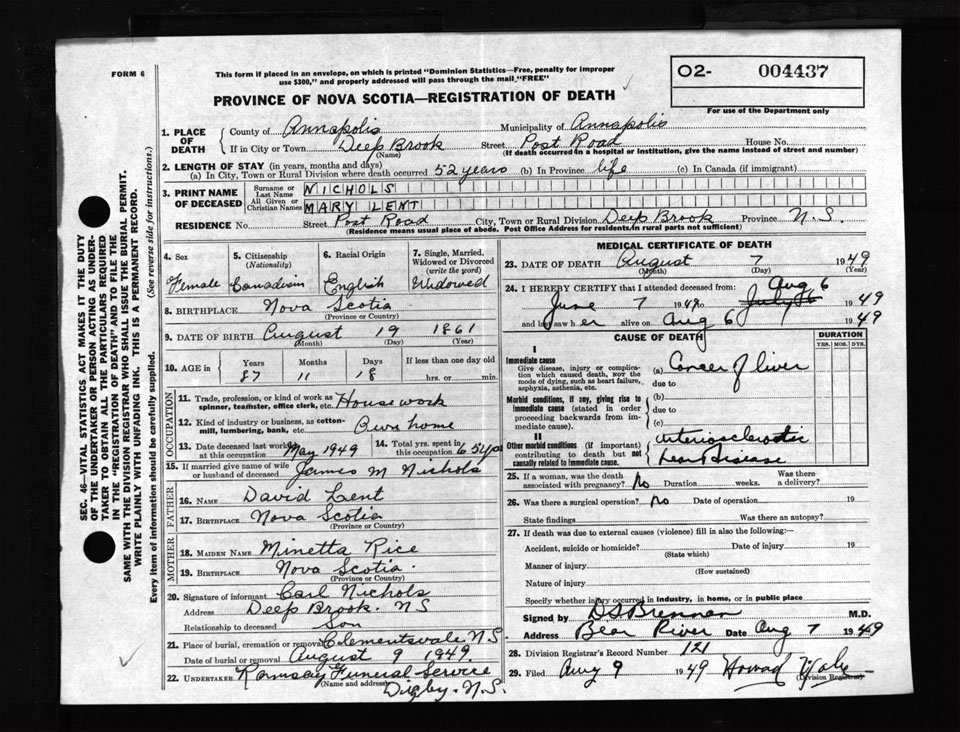 FORM 6
This form if placed in an envelope, on which is printed "Dominion Statistics—Free, penalty for improper
use $300," and properly addressed will pass through the mail "FREE"
O2- 004437
For use of the Department only
PROVINCE OF NOVA SCOTIA—REGISTRATION OF DEATH
1. PLACE OF DEATH
County of Annapolis Municipality of Annapolis
If in City or Town Deep Brook Street Post Road House No.
(Name) (If death occurred in a hospital or institution, give the name instead of street and number)
2. LENGTH OF STAY (in years, months and days)
(a) In City, Town or Rural Division where death occurred 52 years (b) In Province life (c) In Canada (if immigrant)
3. PRINT NAME OF DECEASED
Surname or Last Name NICHOLS
All Given or Christian Names MARY LENT
RESIDENCE No. Street Post Road City, Town or Rural Division Deep Brook Province N.S.
(Residence means usual place of abode. Post Office Address for residents in rural parts not sufficient)
4. Sex Female
5. Citizenship (Nationality) Canadian
6. Racial Origin English
7. Single, Married, Widowed or Divorced (write the word) Widowed
8. BIRTHPLACE Nova Scotia
(Province or Country)
9. DATE OF BIRTH August 19 1861
(Month) (Day) (Year)
10. AGE in Years Months Days If less than one day old
87 11 18 hrs. or min.
OCCUPATION
11. Trade, profession, or kind of work as spinner, teamster, office clerk, etc. Housework
12. Kind of industry or business, as cotton-mill, lumbering, bank, etc. Own home
13. Date deceased last worked at this occupation May 1949
14. Total yrs. spent in this occupation
15. If married give name of wife or husband of deceased James M Nichols
FATHER
16. NAME David Lent
17. BIRTHPLACE Nova Scotia
(Province or Country)
MOTHER
18. MAIDEN NAME Minetta Rice
19. BIRTHPLACE Nova Scotia.
(Province or Country)
20. Signature of informant Carl Nichols
Address Deep Brook. N S
Relationship to deceased Son
21. Place of burial, cremation or removal Clementsvale N S
Date of burial or removal August 9 1949.
22. UNDERTAKER Ramsay Funeral Service
(Name and address) Digby. N.S.
MEDICAL CERTIFICATE OF DEATH
23. DATE OF DEATH August 7 1949
(Month) (Day) (Year)
24. I HEREBY CERTIFY that I attended deceased from: Aug 6
June 7 1949 to July 6 1949
and last saw her alive on Aug 6 1949
CAUSE OF DEATH DURATION
YRS. MOS. DYS.
I
Immediate cause
Give disease, injury or complication which caused death, not the mode of dying, such as heart failure, asphyxia, asthenia, etc.
(a) Cancer of liver
due to
Morbid conditions, if any, giving rise to immediate cause (stated in order proceeding backwards from immediate cause).
(b)
due to
(c)
II
Other morbid conditions (if important) contributing to death but not causally related to immediate cause.
Arteriosclerotic
heart Disease
25. If a woman, was the death associated with pregnancy? No Duration weeks. Was there a delivery?
26. Was there a surgical operation? No Date of operation 19
State findings Was there an autopsy?
27. If death was due to external causes (violence) fill in also the following:—
Accident, suicide or homicide? Date of injury 19
(State which)
Manner of injury
(How sustained)
Nature of injury
Specify whether injury occurred in industry, in home, or in public place
Signed by D S Brennan M.D.
Address Bear River Date Aug 7 1949
28. Division Registrar's Record Number 121
29. Filed Aug 9 1949 (Division Registrar)
SEC. 46—VITAL STATISTICS ACT MAKES IT THE DUTY
OF THE UNDERTAKER OR PERSON ACTING AS UNDER-
TAKER TO OBTAIN ALL THE PARTICULARS REQUIRED
IN THE "REGISTRATION OF DEATH" AND TO FILE THE
SAME WITH THE DIVISION REGISTRAR WHO SHALL ISSUE THE BURIAL PERMIT.
WRITE PLAINLY WITH UNFADING INK. THIS IS A PERMANENT RECORD.
Every item of information should be carefully supplied. (See reverse side for instructions.)